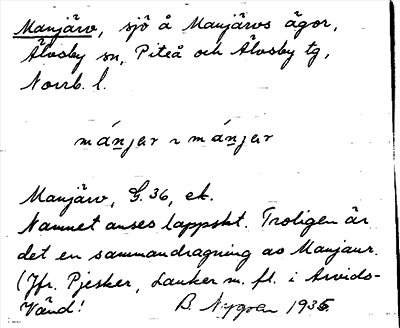 Manjärv, sjö å Manjärvs ägor,
Älvsby sn, Piteå och Älvsby tg,
Norrb. l.
mánjar ~ mánjär
Manjärv, G. 36, ek.
Namnet anses lappskt. Troligen är
det en sammandragning av Manjaur.
(Jfr. Pjesker, Lauker m. fl. i Arvids-
B. Nygren 1935.